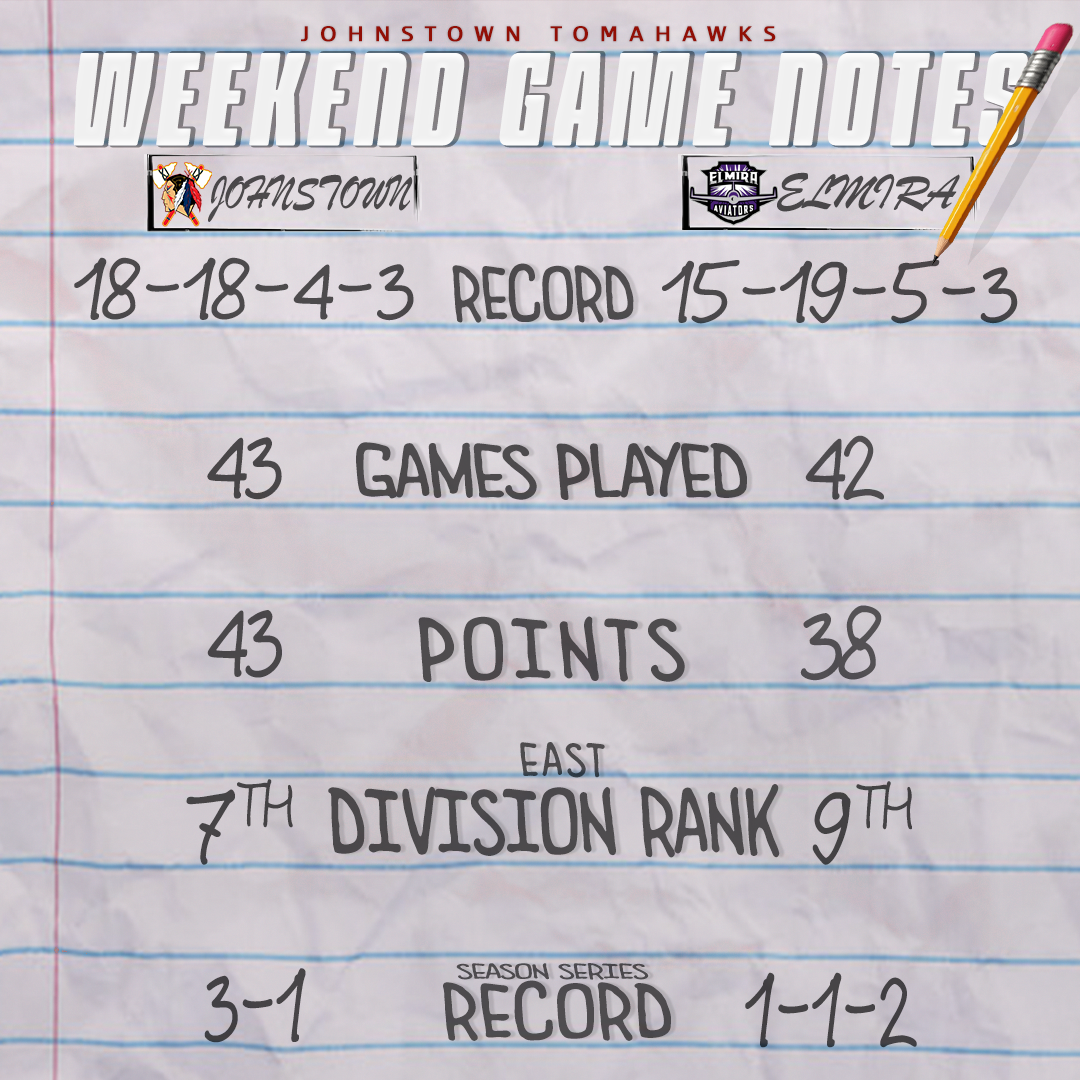 JOHNSTOWN TOMAHAWKS
WEEKEND GAME NOTES
JOHNSTOWN ELMIRA AVIATORS ELMIRA
18-18-4-3 RECORD 15-19-5-3
43 GAMES PLAYED 42
43 POINTS 38
EAST
7TH DIVISION RANK 9TH
SEASON SERIES
3-1 RECORD 1-1-2